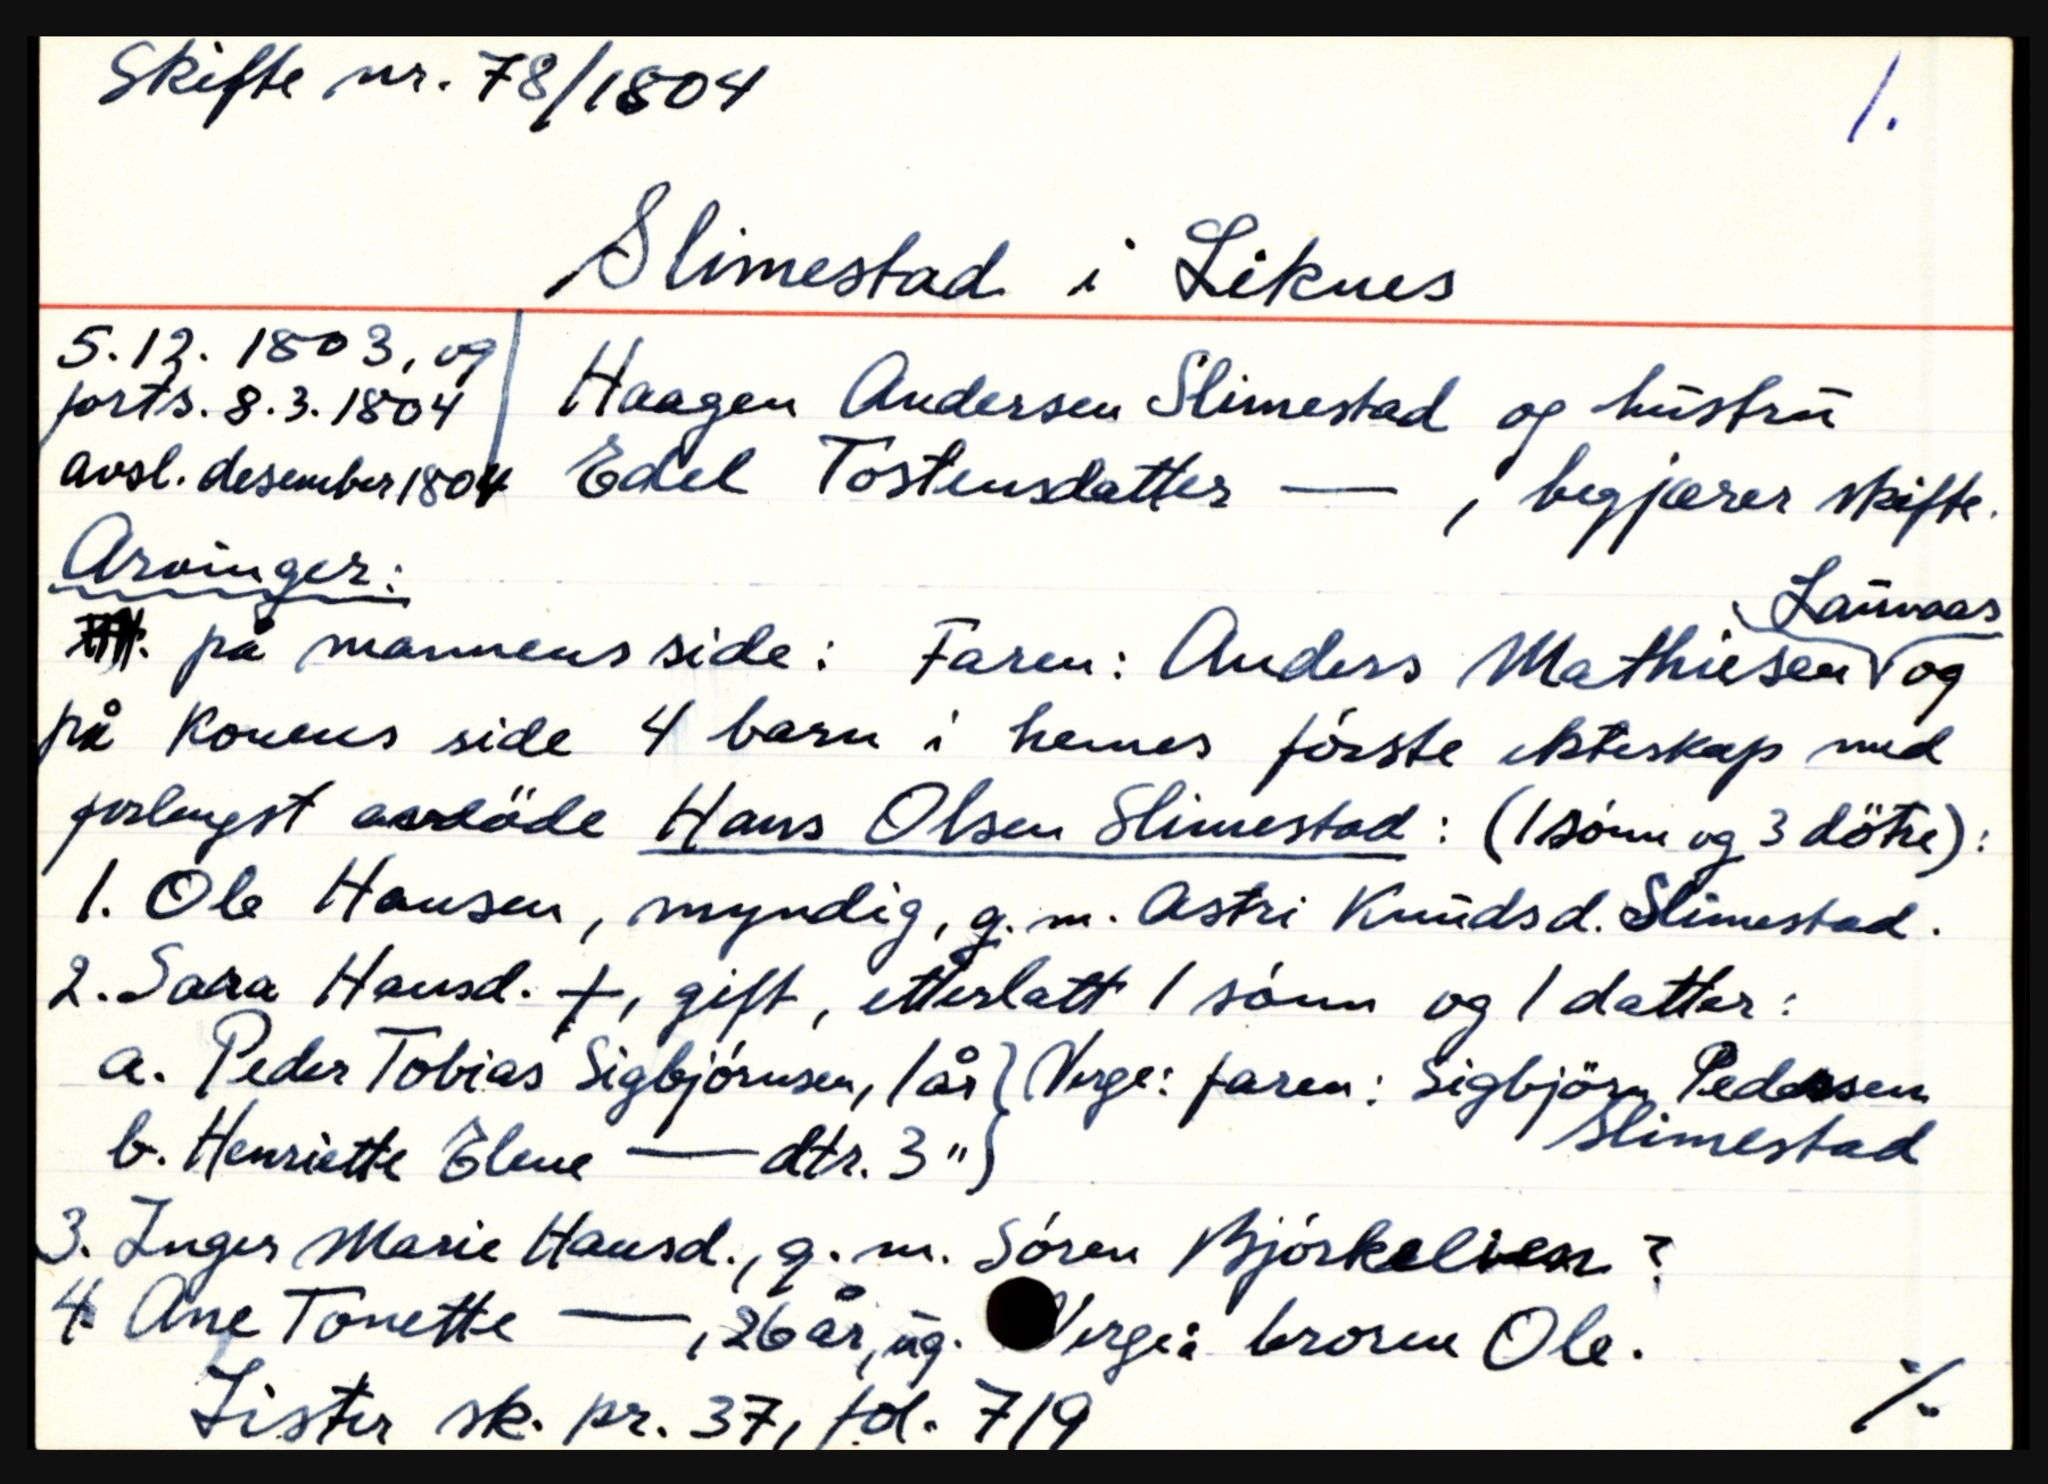 Skifte nr. 78/1804
1.
Slimestad i Liknes
5.12. 1803, og
forts. 8.3. 1804
avsl. desember 1804
Haagen Andersen Slimestad og hústrú
Edel Tostensdatter — , begjærer skifte.
Arvinger:
Laúvaas
på mannens side: Faren: Anders Mathiesen og
på konens side 4 barn i hennes förste ekteskap med
forlengst avdöde Hans Olsen Slimestad: (1 sönn og 3 dötre):
1. Ole Hansen, myndig, g.m. Astri Knúdsd. Slimestad.
2. Sara Hansd. †, gift, etterlatt 1 sönn og 1 datter:
a. Peder Tobias Sigbjörnsen, 1 år } Verge: faren: Sigbjörn Pedersen
Slimestad
b. Henriette Elene — dtr. 3 " }
3. Inger Marie Hansd., g.m. Sören Björkelien?
4. Ane Tonette — , 26 år, úg. Verge: broren Ole.
Lister sk. pr. 37, fol. 719
./.